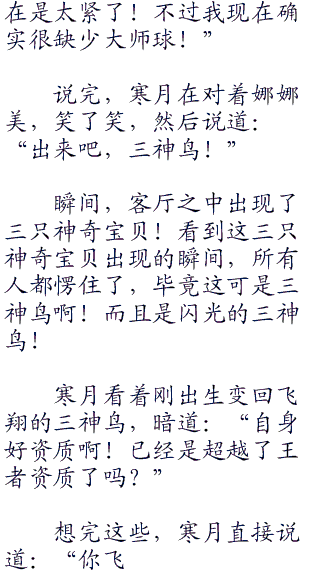 在是太紧了！不过我现在确
实很缺少大师球！”
说完，寒月在对着娜娜
美，笑了笑，然后说道：
“出来吧，三神鸟！”
瞬间，客厅之中出现了
三只神奇宝贝！看到这三只
神奇宝贝出现的瞬间，所有
人都愣住了，毕竟这可是三
神鸟啊！而且是闪光的三神
鸟！
寒月看着刚出生变回飞
翔的三神鸟，暗道：“自身
好资质啊！已经是超越了王
者资质了吗？”
想完这些，寒月直接说
道：“你飞